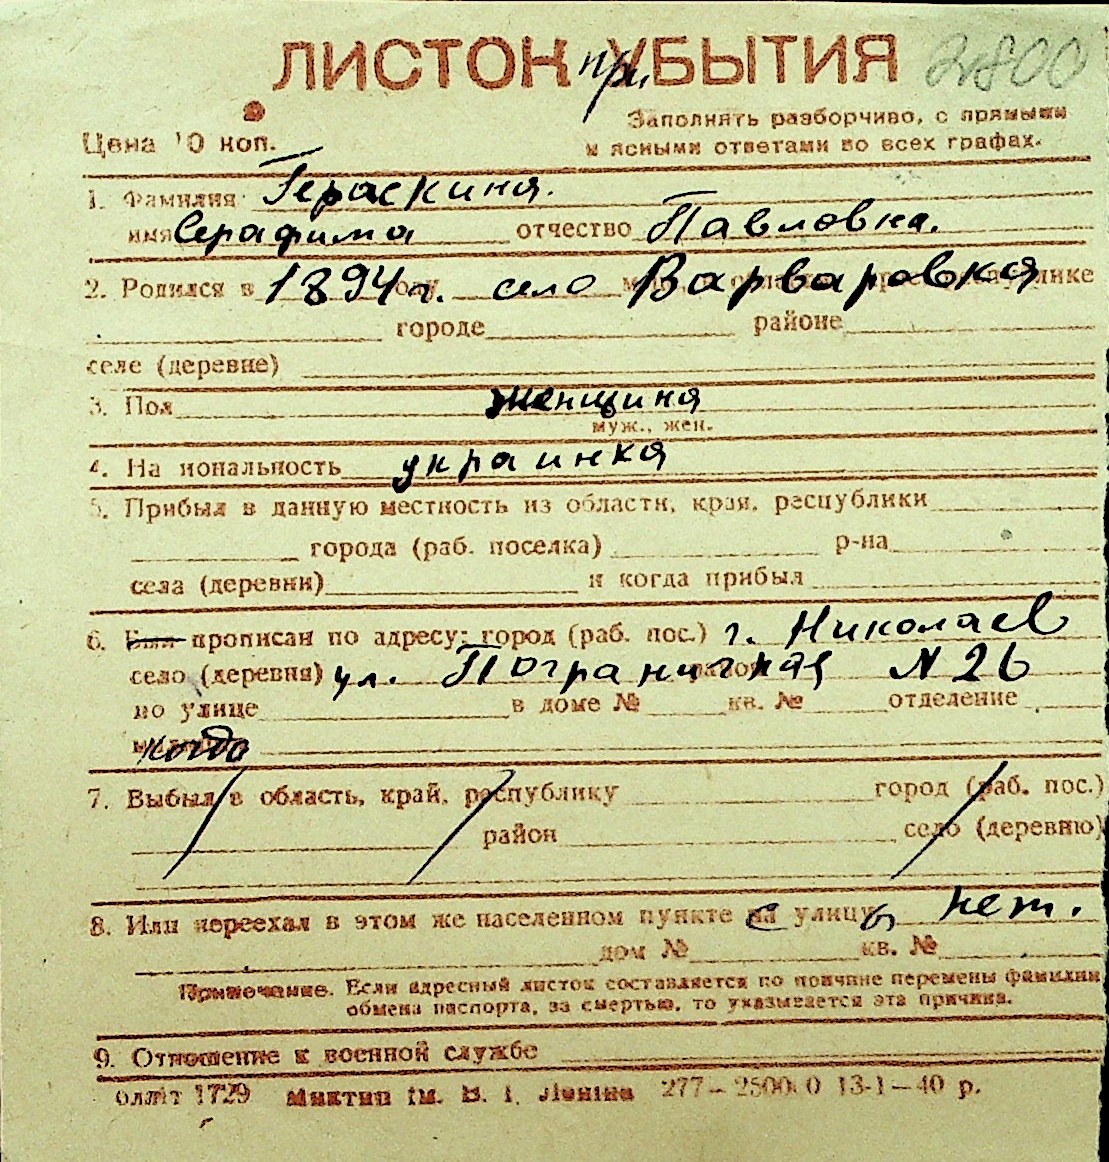 ЛИСТОК при УБЫТИЯ 2800
Заполнять разборчиво, с прямыми
Цена 10 коп. и ясными ответами во всех графах.
1. Фамилия Гераскина.
имя Серафима отчество Павловна.
2. Родился в 1894 г. село Варваровка
городе районе
селе (деревне)
3. Пол женщина
муж., жен.
4. Национальность украинка
5. Прибыл в данную местность из области, края, республики
города (раб. поселка) р-на
села (деревни) и когда прибыл
6. Был прописан по адресу: город (раб. пос.) г. Николаев
село (деревня) ул. Пограничная N 26
по улице в доме № кв. № отделение
когда
7. Выбыл в область, край, республику город (раб. пос.)
район село (деревню)
8. Или переехал в этом же населенном пункте с улицы нет.
дом № кв. №
Примечание. Если адресный листок составляется по причине перемены фамилии
обмена паспорта, за смертью, то указывается эта причина.
9. Отношение к военной службе
1729 ім. В. І. Леніна 277 – 13-1–40 р.